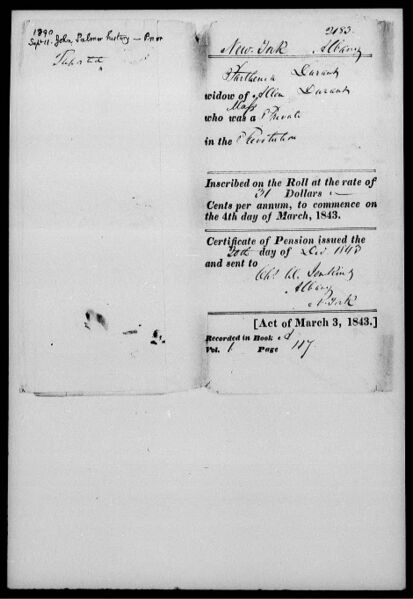 1890
Sept 11. John Palmer history –
2483.
New York Albany
Parthenia Durant
widow of Allen Durant
Mass
who was a Private
in the Revolution
Inscribed on the Roll at the rate of
31 Dollars –
Cents per annum, to commence on
the 4th day of March, 1843.
Certificate of Pension issued the
20th day of Dec 1843
and sent to
Chs A. Jenkins
Albany
N. York
[Act of March 3, 1843.]
Recorded in Book A
Vol. 1 Page 117.